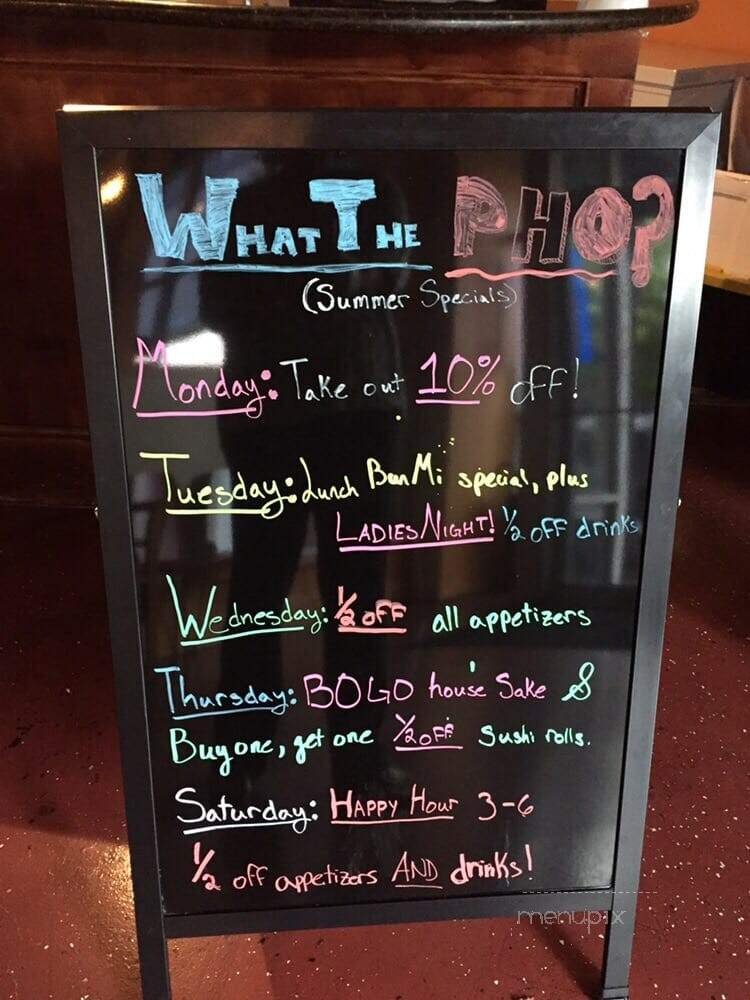 WHAT THE PHO?
(Summer Specials)
Monday: Take out 10% off!
Tuesday: Lunch Ban Mi special, plus
LADIES NIGHT! 1/2 OFF drinks
Wednesday: 1/2 OFF all appetizers
Thursday: BOGO house Sake &
Buy one, get one 1/2 OFF Sushi rolls.
Saturday: HAPPY HOUR 3-6
1/2 off appetizers AND drinks!
menupix